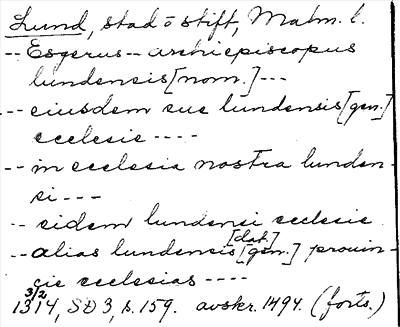 Lund, stad o stift, Malm. l.
-- Esgerus -- archiepiscopus
lundensis [nom.] ---
-- eiusdem sue lundensis [gen.]
ecclesie ----
-- in ecclesia nostra lunden-
si ---
-- eidem lundensi ecclesie [dat.]
-- alias lundensis [gen.] prouin-
cie ecclesias ----
13 3/2 14, SD 3, s. 159. avskr. 1494. (forts.)